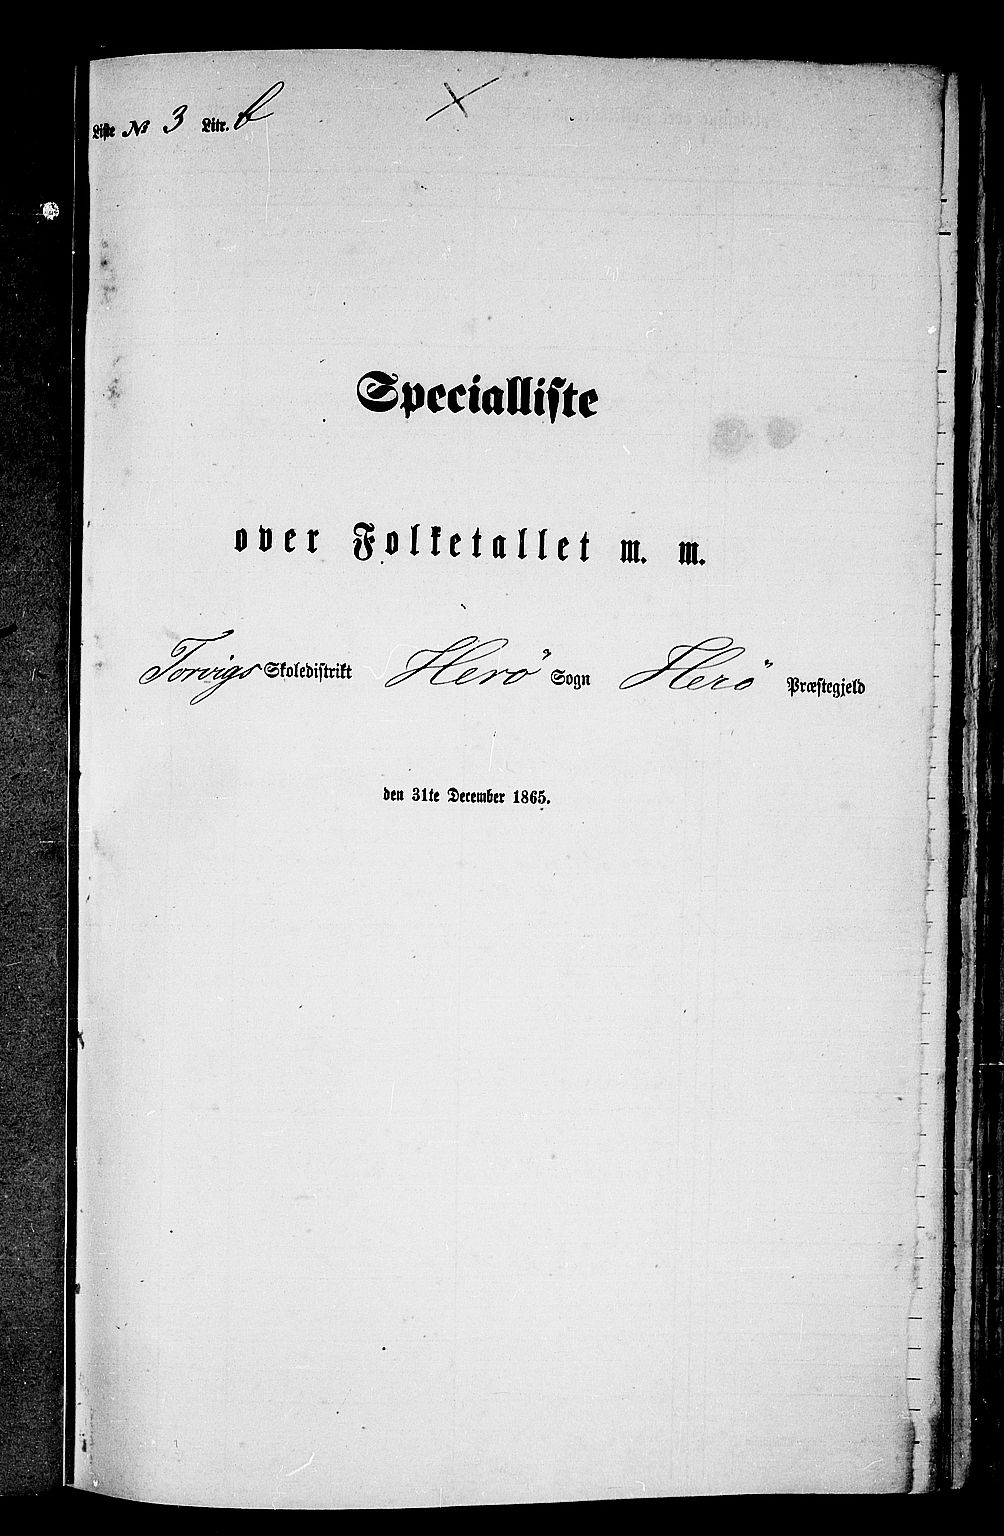 Liste № 3 Litr. b
Specialliste
over Folketallet m. m.
Torvigs Skoledistrikt Herö Sogn Herö Præstegjeld
den 31te December 1865.